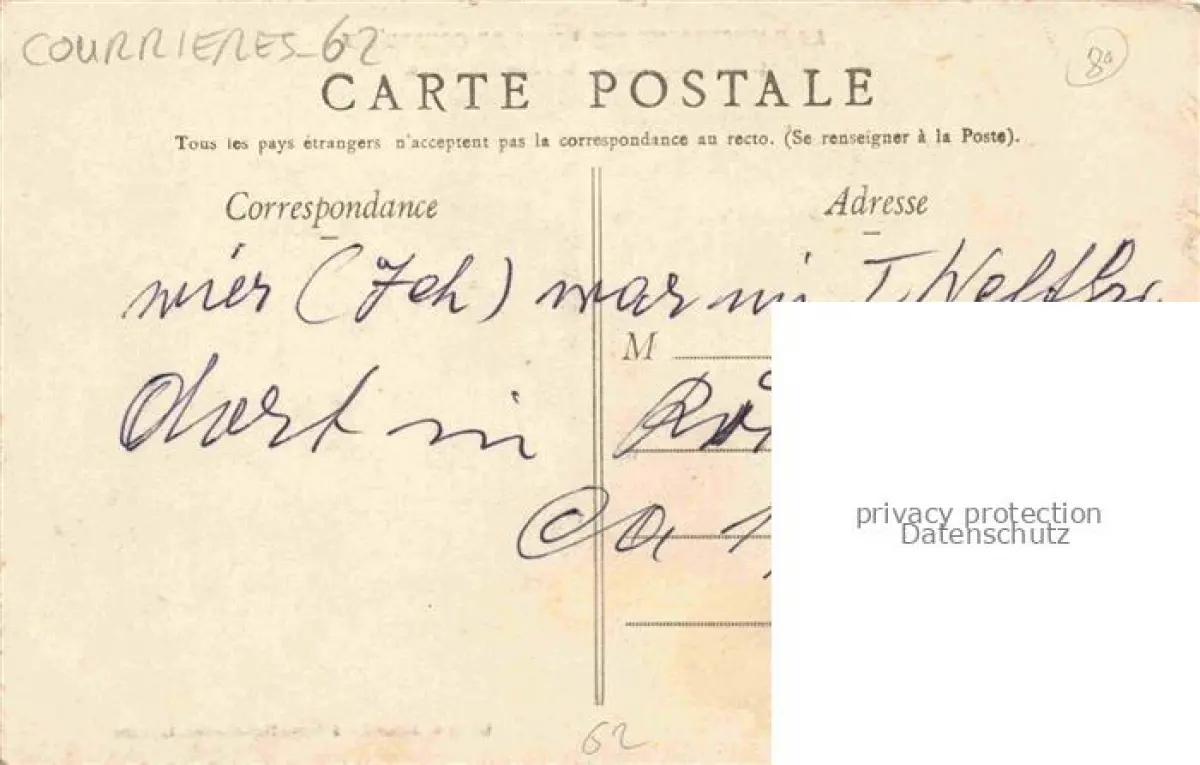 COURRIERES-62
8°
CARTE POSTALE
Tous les pays étrangers n'acceptent pas la correspondance au recto. (Se renseigner à la Poste).
Correspondance
Adresse
(Ich) war im I Weltkr
M
dort in
Ca 1
privacy protection
Datenschutz
62